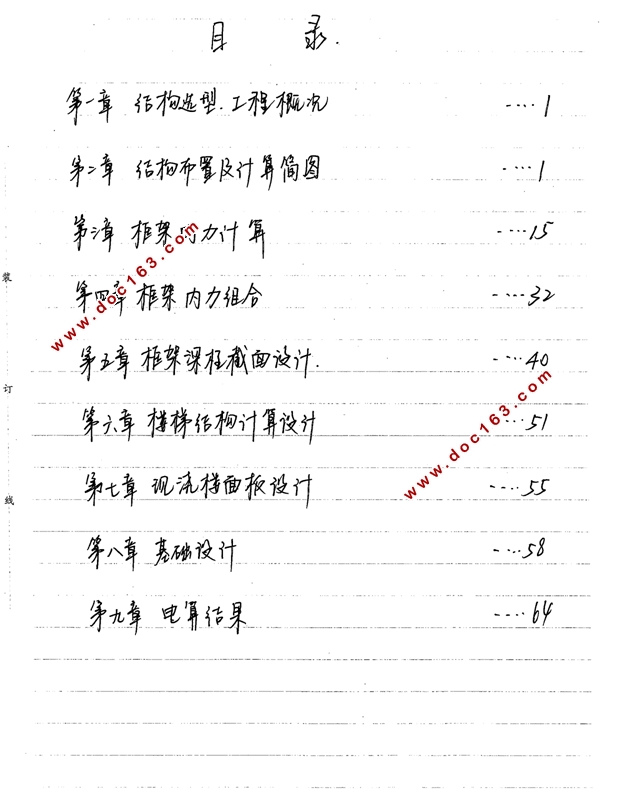 目 录.
第一章 结构选型.工程概况 ····1
第二章 结构布置及计算简图 ····1
第三章 框架内力计算 ····15
第四章 框架内力组合 ····32
第五章 框架梁柱截面设计. ····40
第六章 楼梯结构计算设计 ····51
第七章 现浇楼面板设计 ····55
第八章 基础设计 ····58
第九章 电算结果 ····64
装
订
线
www.doc163.com
www.doc163.com